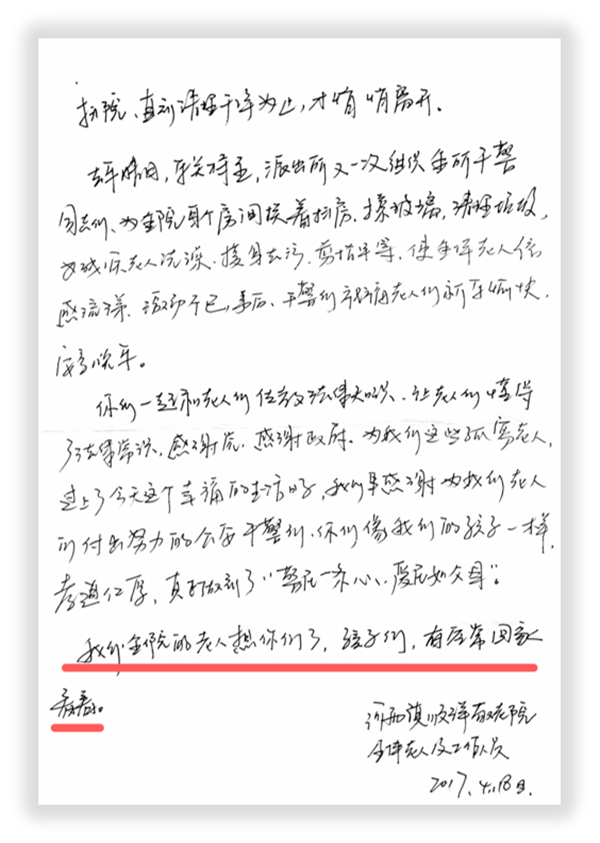 扫院、直到清理干净为止，才悄悄离开。
去年腊月，年关将至，派出所又一次组织全所干警
同志们、为全院每个房间挨着扫房、擦玻璃，清理垃圾，
老人洗澡、搓身去污、剪指甲等，使全体老人倍
感流涕、激动不已，事后、干警们祝福老人们新年愉快，
安享晚年。
你们一起和老人们宣教法律知识、让老人们懂得
了法律常识，感谢党、感谢政府、为我们这些孤寡老人，
过上了今天这个幸福的生活，我们感谢为我们老人
们付出努力的公安干警们、你们像我们的孩子一样，
孝道仁厚，真的做到了“警民一条心、爱民如父母”。
我们全院的老人想你们了，孩子们，有空常回家
看看。
顺祥敬老院
全体老人及工作人员
2017.4.18日.